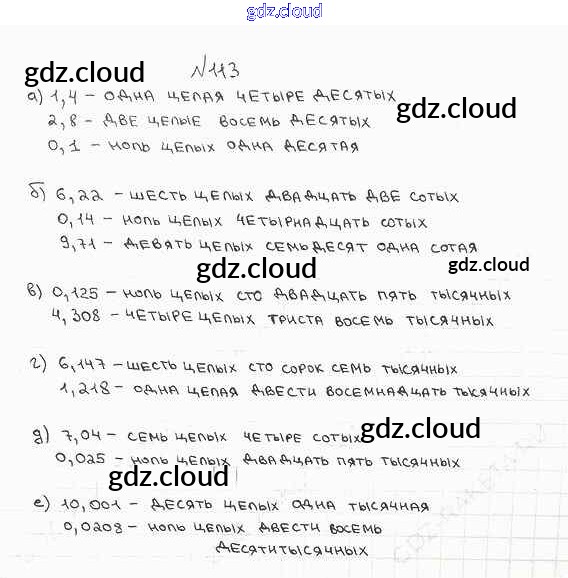 gdz.cloud
№113
gdz.cloud
а) 1,4 – ОДНА ЦЕЛАЯ ЧЕТЫРЕ ДЕСЯТЫХ
gdz.cloud
2,8 – ДВЕ ЦЕЛЫЕ ВОСЕМЬ ДЕСЯТЫХ
0,1 – НОЛЬ ЦЕЛЫХ ОДНА ДЕСЯТАЯ
б) 6,22 – ШЕСТЬ ЦЕЛЫХ ДВАДЦАТЬ ДВЕ СОТЫХ
0,14 – НОЛЬ ЦЕЛЫХ ЧЕТЫРНАДЦАТЬ СОТЫХ
9,71 – ДЕВЯТЬ ЦЕЛЫХ СЕМЬДЕСЯТ ОДНА СОТАЯ
gdz.cloud
gdz.cloud
в) 0,125 – НОЛЬ ЦЕЛЫХ СТО ДВАДЦАТЬ ПЯТЬ ТЫСЯЧНЫХ
4,308 – ЧЕТЫРЕ ЦЕЛЫХ ТРИСТА ВОСЕМЬ ТЫСЯЧНЫХ
г) 6,147 – ШЕСТЬ ЦЕЛЫХ СТО СОРОК СЕМЬ ТЫСЯЧНЫХ
1,218 – ОДНА ЦЕЛАЯ ДВЕСТИ ВОСЕМНАДЦАТЬ ТЫСЯЧНЫХ
gdz.cloud
д) 7,04 – СЕМЬ ЦЕЛЫХ ЧЕТЫРЕ СОТЫХ
0,025 – НОЛЬ ЦЕЛЫХ ДВАДЦАТЬ ПЯТЬ ТЫСЯЧНЫХ
gdz.cloud
е) 10,001 – ДЕСЯТЬ ЦЕЛЫХ ОДНА ТЫСЯЧНАЯ
0,0208 – НОЛЬ ЦЕЛЫХ ДВЕСТИ ВОСЕМЬ
ДЕСЯТИТЫСЯЧНЫХ